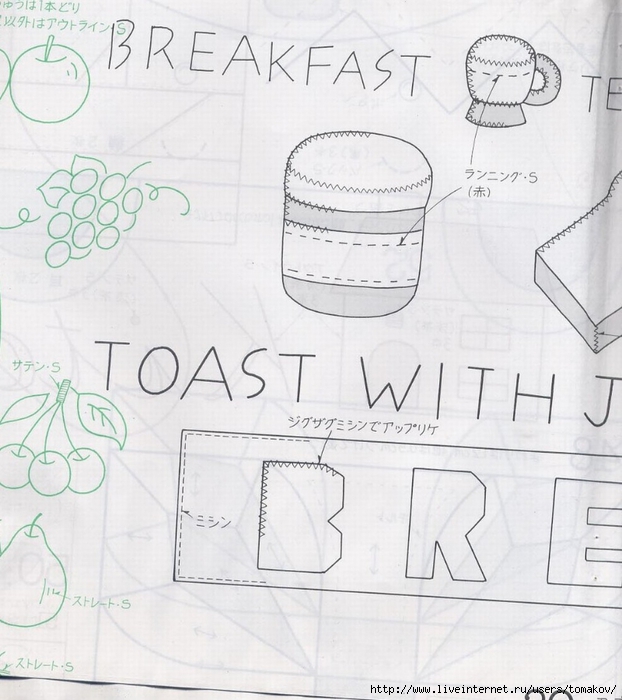 ゅうは1本どり
以外はアウトラインS
BREAKFAST TE
ランニング・S
(赤)
サテン・S
TOAST WITH J
ジグザグミシンでアップリケ
ミシン
BRE
ストレート・S
ストレート・S
http://www.liveinternet.ru/users/tomakov/